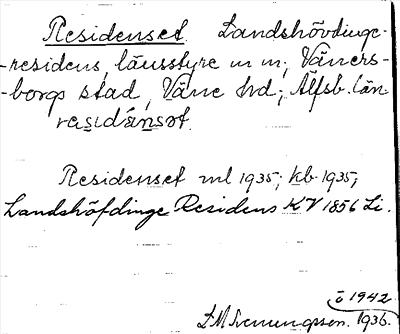 Residenset. Landshövdinge-
-residens, länsstyre m m; Väners-
-borgs stad, Väne hd; Älfsb. län
residánsət.
Residenset ml 1935; kb 1935;
Landshöfdinge Residens KV 1856 Li.
ö 1942
1936.